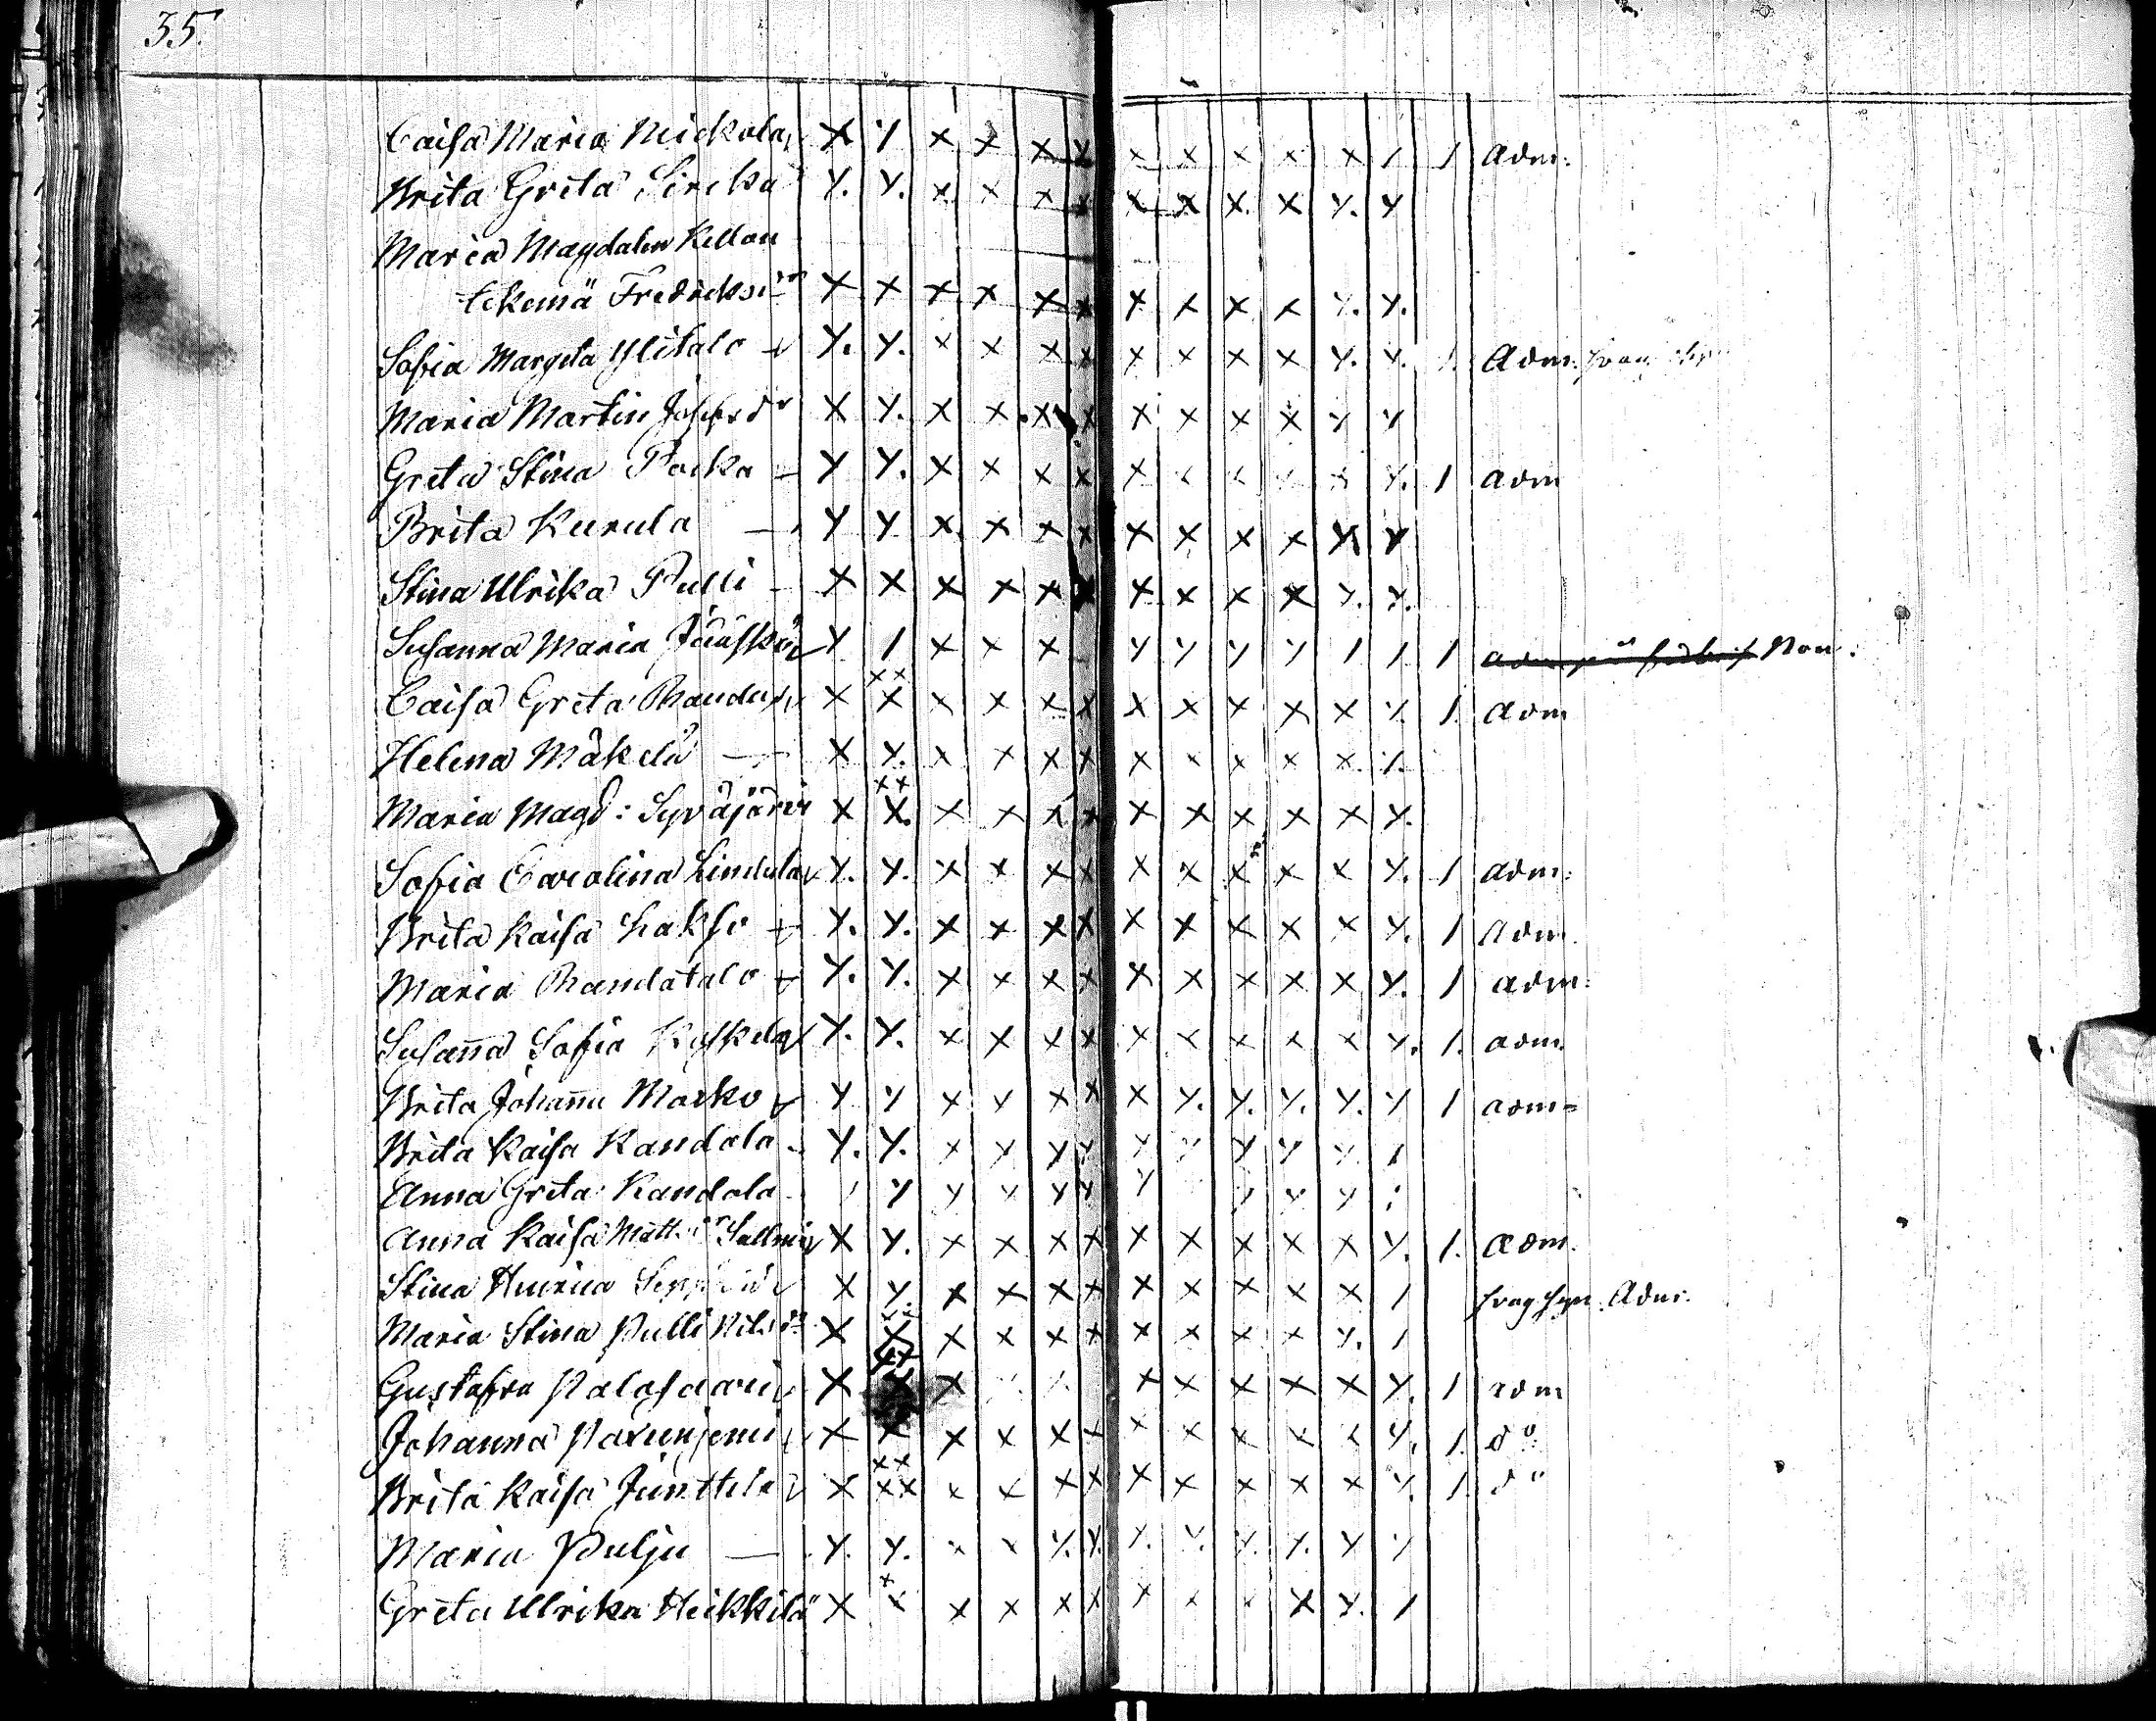 35.
Caisa Maria Nickola X Y X X X X X X X X X / / Adm:
Brita Greta Sircka Y. Y. X X X X X X X. X Y. Y
Maria Magdalen Kellon
tekemä Fredricksdr X X X X X X X X X X Y. Y.
Sofia Margeta Ylitalo Y. Y. X X X X X X X X Y. Y. / Adm:
Maria Martin Josefsdr X Y. X X X X X X X X Y Y
Greta Stina Packa Y Y. X X X X X X X X X Y. / adm
Brita Kurula Y Y X X X X X X X X Y Y
Stina Ulrika Pulli X X X X X X X X X X Y. Y.
Susanna Maria Y / X X X Y Y Y Y / / / Non.
Caisa Greta X X X X X X X X X X X X X Y. / adm
Helena Mäkelä X Y. X X X X X X X X X. Y.
Maria Magd: Syväjärvi X X X X. X X X X X X X X X Y.
Sofia Carolina Lindula Y. Y. X X X X X X X X X Y. / adm:
Brita Kaisa Lakso Y. Y. X X X X X X X X X Y. / Adm.
Maria Randatalo Y. Y. X X X X X X X X X Y. / adm:
Susaña Sofia Koskela Y. Y. X X X X X X X X X Y. /. adm.
Brita Johaña Marko Y Y X Y X X X Y. Y. Y. Y. Y / adm=
Brita Kaisa Kandola Y. Y. X X Y Y Y Y Y Y Y /
Anna Greta Kandola / Y Y Y Y Y Y / Y Y /
Anna Kaisa Matts dr X Y. X X X X X X X X X Y. /. adm.
Stina X Y. X X X X X X X X X / Adm.
Maria Stina Pulli Nilsdr X X X X X X X X X X Y. /
Gustafva Palosaari X X X X X X X X Y. / adm
Johanna Parkunjemi X X X X X X X X X X X Y. /. do:
Brita Kaisa Junttila X X X X X X X X X X X X X X Y. /. do
Maria Pulju Y. Y. X X Y. Y. Y. Y. Y. Y. Y Y
Greta Ulrika Heikkilä X X X X X X X X X X X X Y. /